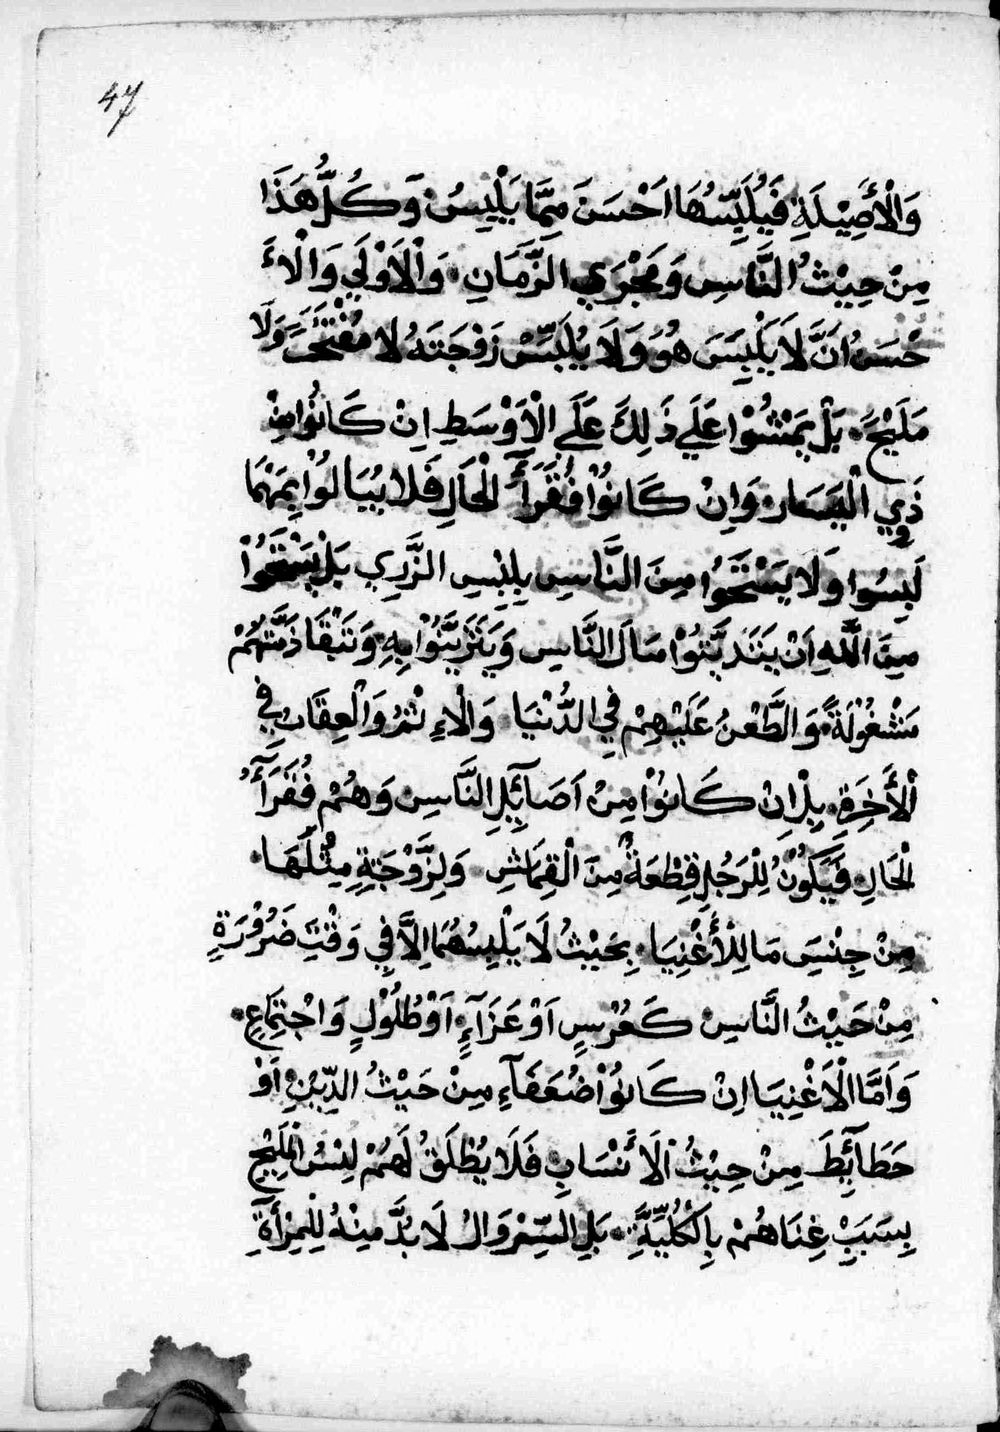 47
وَالْأَصِيْلَةِ فَيُلَبِّسُهَا اَحْسَنَ مِمَّا يَلْبِسُ وَكُلُّ هَذَا
مِنْ حِيْثُ النَّاسِ وَمَجْرَي الزَّمَانِ وَالْاَوْلَي وَالْاءَ
حْسَنُ اَنَّ لَا يَلْبِسَ هُوَ وَلَا يُلَبِّسْ زَوْجَتَهُ لَا مُفْتَخَرً وَلَا
مَلِيْحَ بَلْ يَمْشُوْا عَلَي ذَلِكَ عَلَي الْاَوْسَطِ اِنْ كَانُوْا مِنْ
ذَوِي الْيَسَارِ وَاِنْ كَانُوْا فُقَرَآءَ الْحَالِ فَلَا يُبَالُوْا بِمَهْمَا
لَبِسُوا وَلَا يَسْتَحُوْا مِنَ النَّاسِ بِلِبْسِ الزَّرِي بَلْ يَسْتَحُوْا
مِنَ اللّٰهِ اَنْ يَتَدَيَّنُوْا مَالَ النَّاسِ وَيَتَزَيَّنُوْا بِهِ وَتَبْقَا ذِمَّتُهُمْ
مَشْغُوْلَةً وَالطَّعْنُ عَلَيْهِمْ فِي الدُّنْيَا وَالْاِءثْمُ وَالْعِقَابُ فِي
اْلأَخِرَةِ بِلْ اِنْ كَانُوْا مِنْ اَصَآئِلِ النَّاسِ وَهُمْ فُقَرَآءُ
لْحَالِ فَيَكُوْنُ لِلْرَجُلِ قِطْعَةٌ مِنَ الْقِمَاشِ وَلِزَّوْجَتِةِ مِثْلَهَا
مِنْ جِنْسِ مَا لِلْأَغْنِيَا بِحَيْثُ لَا يَلْبِسُهُمَا اِلَّا فِي وَقْتِ ضَرُوْرَةٍ
مِنْ حَيْثُ النَّاسِ كَعُرْسٍ اَوْ عَزَآءٍ اَوْ طُلُوْلٍ وَاجْتِمَاعٍ
وَاَمَّا الْاَغْنِيَا اِنْ كَانُوْا ضُعَفَآءِ مِنْ حَيْثُ الدِّيْنِ اَوْ
حَطَآئِطَ مِنْ حِيْثُ الَأَنْسَابِ فَلَا يُطْلَقُ لَهُمْ لِبْسُ الْمَلِيْحِ
بِسَبَبِ غِنَاهُمْ بِالْكُلِّيَّةِ بَلِ السِّرْوَالُ لَا بُدَّ مِنْهُ لِلْمِرْأَةِ